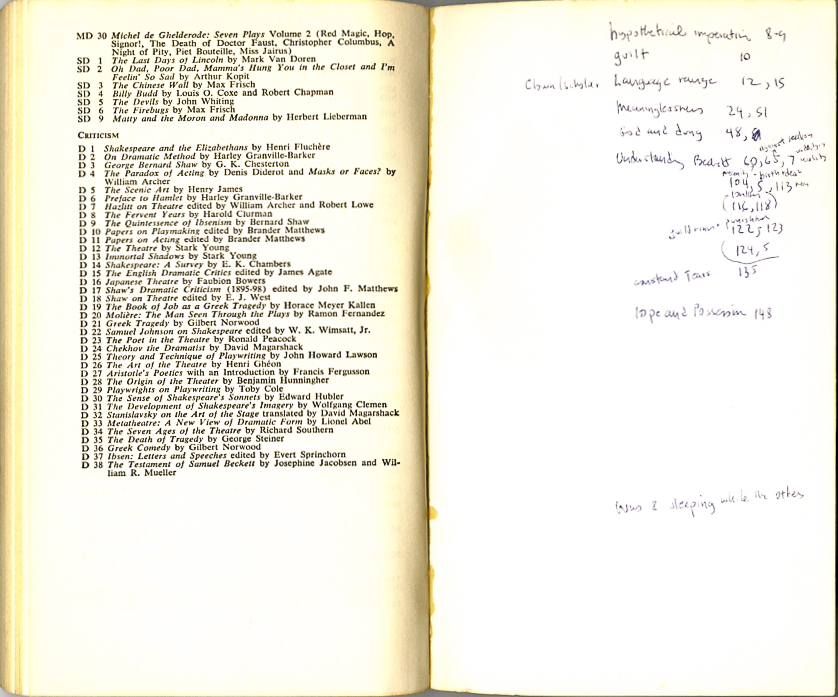 MD 30 Michel de Ghelderode: Seven Plays Volume 2 (Red Magic, Hop,
Signor!, The Death of Doctor Faust, Christopher Columbus, A
Night of Pity, Piet Bouteille, Miss Jairus)
SD 1 The Last Days of Lincoln by Mark Van Doren
SD 2 Oh Dad, Poor Dad, Mamma's Hung You in the Closet and I'm
Feelin' So Sad by Arthur Kopit
SD 3 The Chinese Wall by Max Frisch
SD 4 Billy Budd by Louis O. Coxe and Robert Chapman
SD 5 The Devils by John Whiting
SD 6 The Firebugs by Max Frisch
SD 9 Matty and the Moron and Madonna by Herbert Lieberman
CRITICISM
D 1 Shakespeare and the Elizabethans by Henri Fluchère
D 2 On Dramatic Method by Harley Granville-Barker
D 3 George Bernard Shaw by G. K. Chesterton
D 4 The Paradox of Acting by Denis Diderot and Masks or Faces? by
William Archer
D 5 The Scenic Art by Henry James
D 6 Preface to Hamlet by Harley Granville-Barker
D 7 Hazlitt on Theatre edited by William Archer and Robert Lowe
D 8 The Fervent Years by Harold Clurman
D 9 The Quintessence of Ibsenism by Bernard Shaw
D 10 Papers on Playmaking edited by Brander Matthews
D 11 Papers on Acting edited by Brander Matthews
D 12 The Theatre by Stark Young
D 13 Immortal Shadows by Stark Young
D 14 Shakespeare: A Survey by E. K. Chambers
D 15 The English Dramatic Critics edited by James Agate
D 16 Japanese Theatre by Faubion Bowers
D 17 Shaw's Dramatic Criticism (1895-98) edited by John F. Matthews
D 18 Shaw on Theatre edited by E. J. West
D 19 The Book of Job as a Greek Tragedy by Horace Meyer Kallen
D 20 Molière: The Man Seen Through the Plays by Ramon Fernandez
D 21 Greek Tragedy by Gilbert Norwood
D 22 Samuel Johnson on Shakespeare edited by W. K. Wimsatt, Jr.
D 23 The Poet in the Theatre by Ronald Peacock
D 24 Chekhov the Dramatist by David Magarshack
D 25 Theory and Technique of Playwriting by John Howard Lawson
D 26 The Art of the Theatre by Henri Ghéon
D 27 Aristotle's Poetics with an Introduction by Francis Fergusson
D 28 The Origin of the Theater by Benjamin Hunningher
D 29 Playwrights on Playwriting by Toby Cole
D 30 The Sense of Shakespeare's Sonnets by Edward Hubler
D 31 The Development of Shakespeare's Imagery by Wolfgang Clemen
D 32 Stanislavsky on the Art of the Stage translated by David Magarshack
D 33 Metatheatre: A New View of Dramatic Form by Lionel Abel
D 34 The Seven Ages of the Theatre by Richard Southern
D 35 The Death of Tragedy by George Steiner
D 36 Greek Comedy by Gilbert Norwood
D 37 Ibsen: Letters and Speeches edited by Evert Sprinchorn
D 38 The Testament of Samuel Beckett by Josephine Jacobsen and Wil-
liam R. Mueller
hypothetical imperative 8-9
guilt 10
Clown/scholar Language range 12, 15
Meaninglessness 24, 51
God and dung 48,
Understanding Beckett 60, 65, 7
104, 5, 113
(116, 118)
punishment
122, 123
(124, 5
135
Hope and Possession 148
sleeping while the others